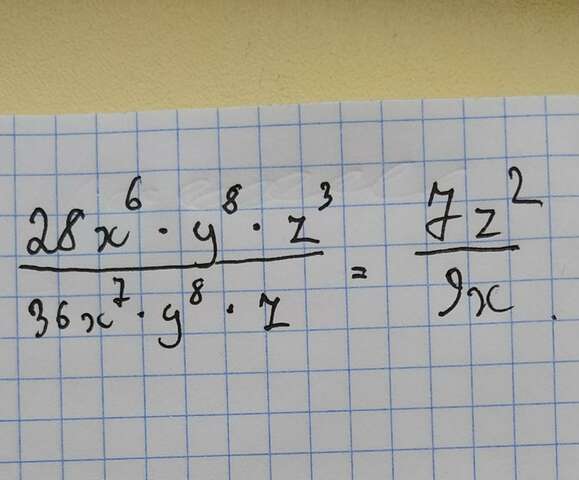 28x⁶ · y⁸ · z³ / 36x⁷ · y⁸ · z = 7z² / 9x .